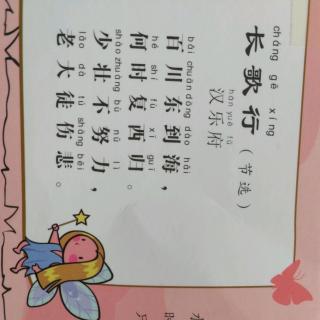 cháng gē xíng
长歌行(节选)
hàn yuè fǔ
汉乐府
bǎi chuān dōng dào hǎi
百川东到海，
hé shí fù xī guī
何时复西归。
shào zhuàng bù nǔ lì
少壮不努力，
lǎo dà tú shāng bēi
老大徒伤悲。